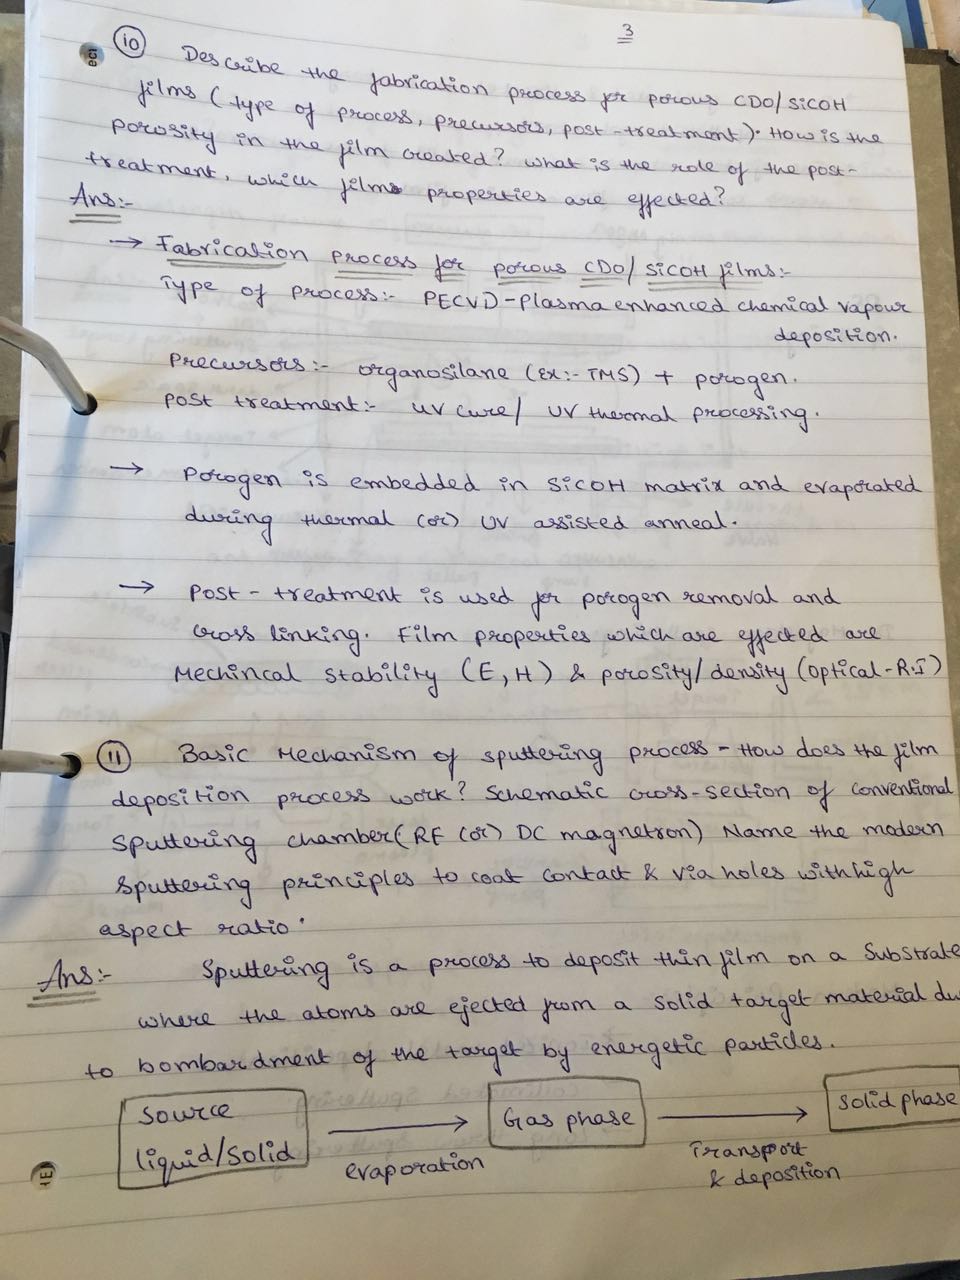 3
10 Describe the fabrication process for porous CDO/SiCOH
films (type of process, precursors, post-treatment). How is the
porosity in the film created? what is the role of the post-
treatment, which films properties are effected?
Ans:-
→ Fabrication process for porous CDO/SiCOH films:-
Type of process:- PECVD-Plasma enhanced chemical vapour
deposition.
Precursors:- organosilane (Ex:- TMS) + porogen.
Post treatment:- UV cure/ UV thermal processing.
→ Porogen is embedded in SiCOH matrix and evaporated
during thermal (or) UV assisted anneal.
→ Post-treatment is used for porogen removal and
cross linking. Film properties which are effected are
Mechincal stability (E,H) & porosity/density (optical-R.I)
11 Basic Mechanism of sputtering process - How does the film
deposition process work? Schematic cross-section of conventional
sputtering chamber (RF (or) DC magnetron) Name the modern
sputtering principles to coat contact & via holes with high
aspect ratio.
Ans:- Sputtering is a process to deposit thin film on a Substrate
where the atoms are ejected from a solid target material du
to bombardment of the target by energetic particles.
Source → Gas phase → Solid phase
liquid/solid evaporation Transport
& deposition